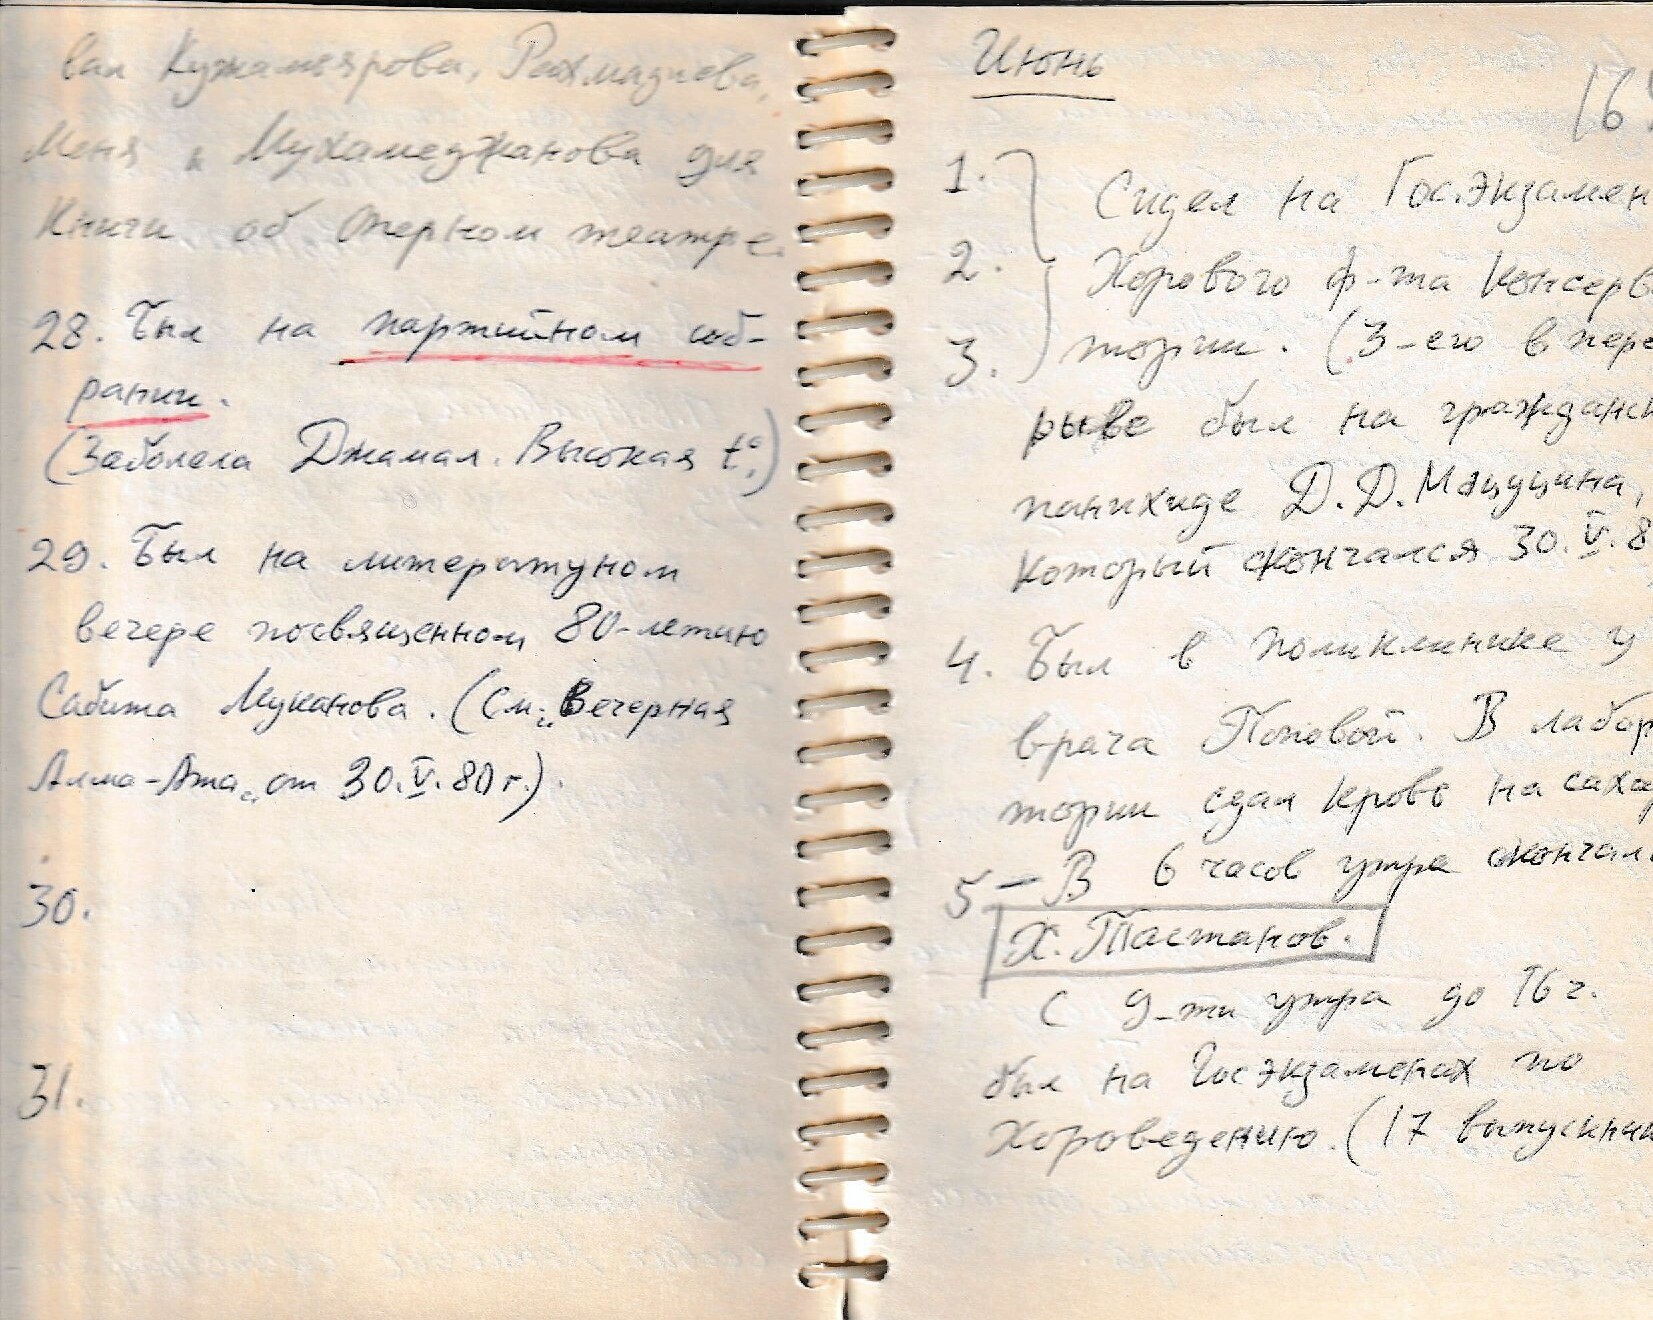 вал Кужамьярова, Рахмадиева,
Меня и Мухамеджанова для
Книги об Оперном театре.
28. Был на партийном соб-
рании.
(Заболела Джамал. Высокая t°.)
29. Был на литературном
вечере посвященном 80-летию
Сабита Муканова. (См. „Вечерная
Алма-Ата„ от 30.V.80 г.).
30.
31.
Июнь
16
1. Сидел на Гос.Экзамен
2. Хорового ф-та Консерва
3. тории. (3-его в пере
рыве был на гражданск
панихиде Д.Д. Мацуцина,
который скончался 30.V.8
4. Был в поликлинике у
врача Поповой. В лабор
тории сдал кровь на сахар
5 – В 6 часов утра скончал
Х. Тастанов.
С 9-ти утра до 16 г.
был на Госэкзаменах по
Хороведению. (17 выпускник